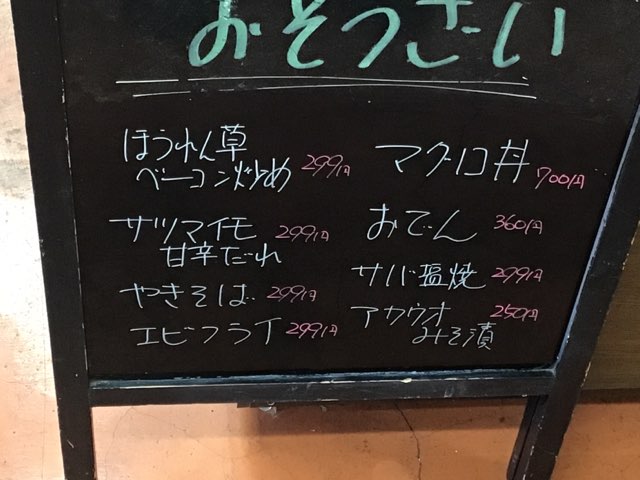 おそうざい
ほうれん草
ベーコン炒め 299円
サツマイモ 299円
甘辛だれ
やきそば 299円
エビフライ 299円
マグロ丼 700円
おでん 360円
サバ塩焼 299円
アカウオ 250円
みそ漬